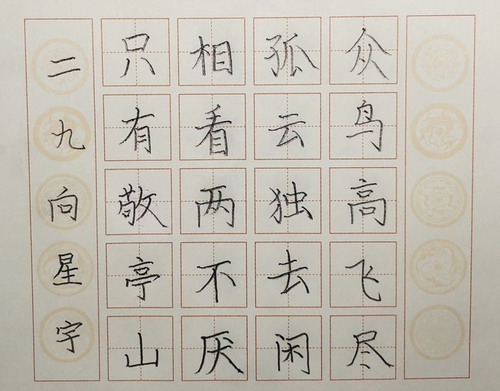 众鸟高飞尽
孤云独去闲
相看两不厌
只有敬亭山
二九向星宇